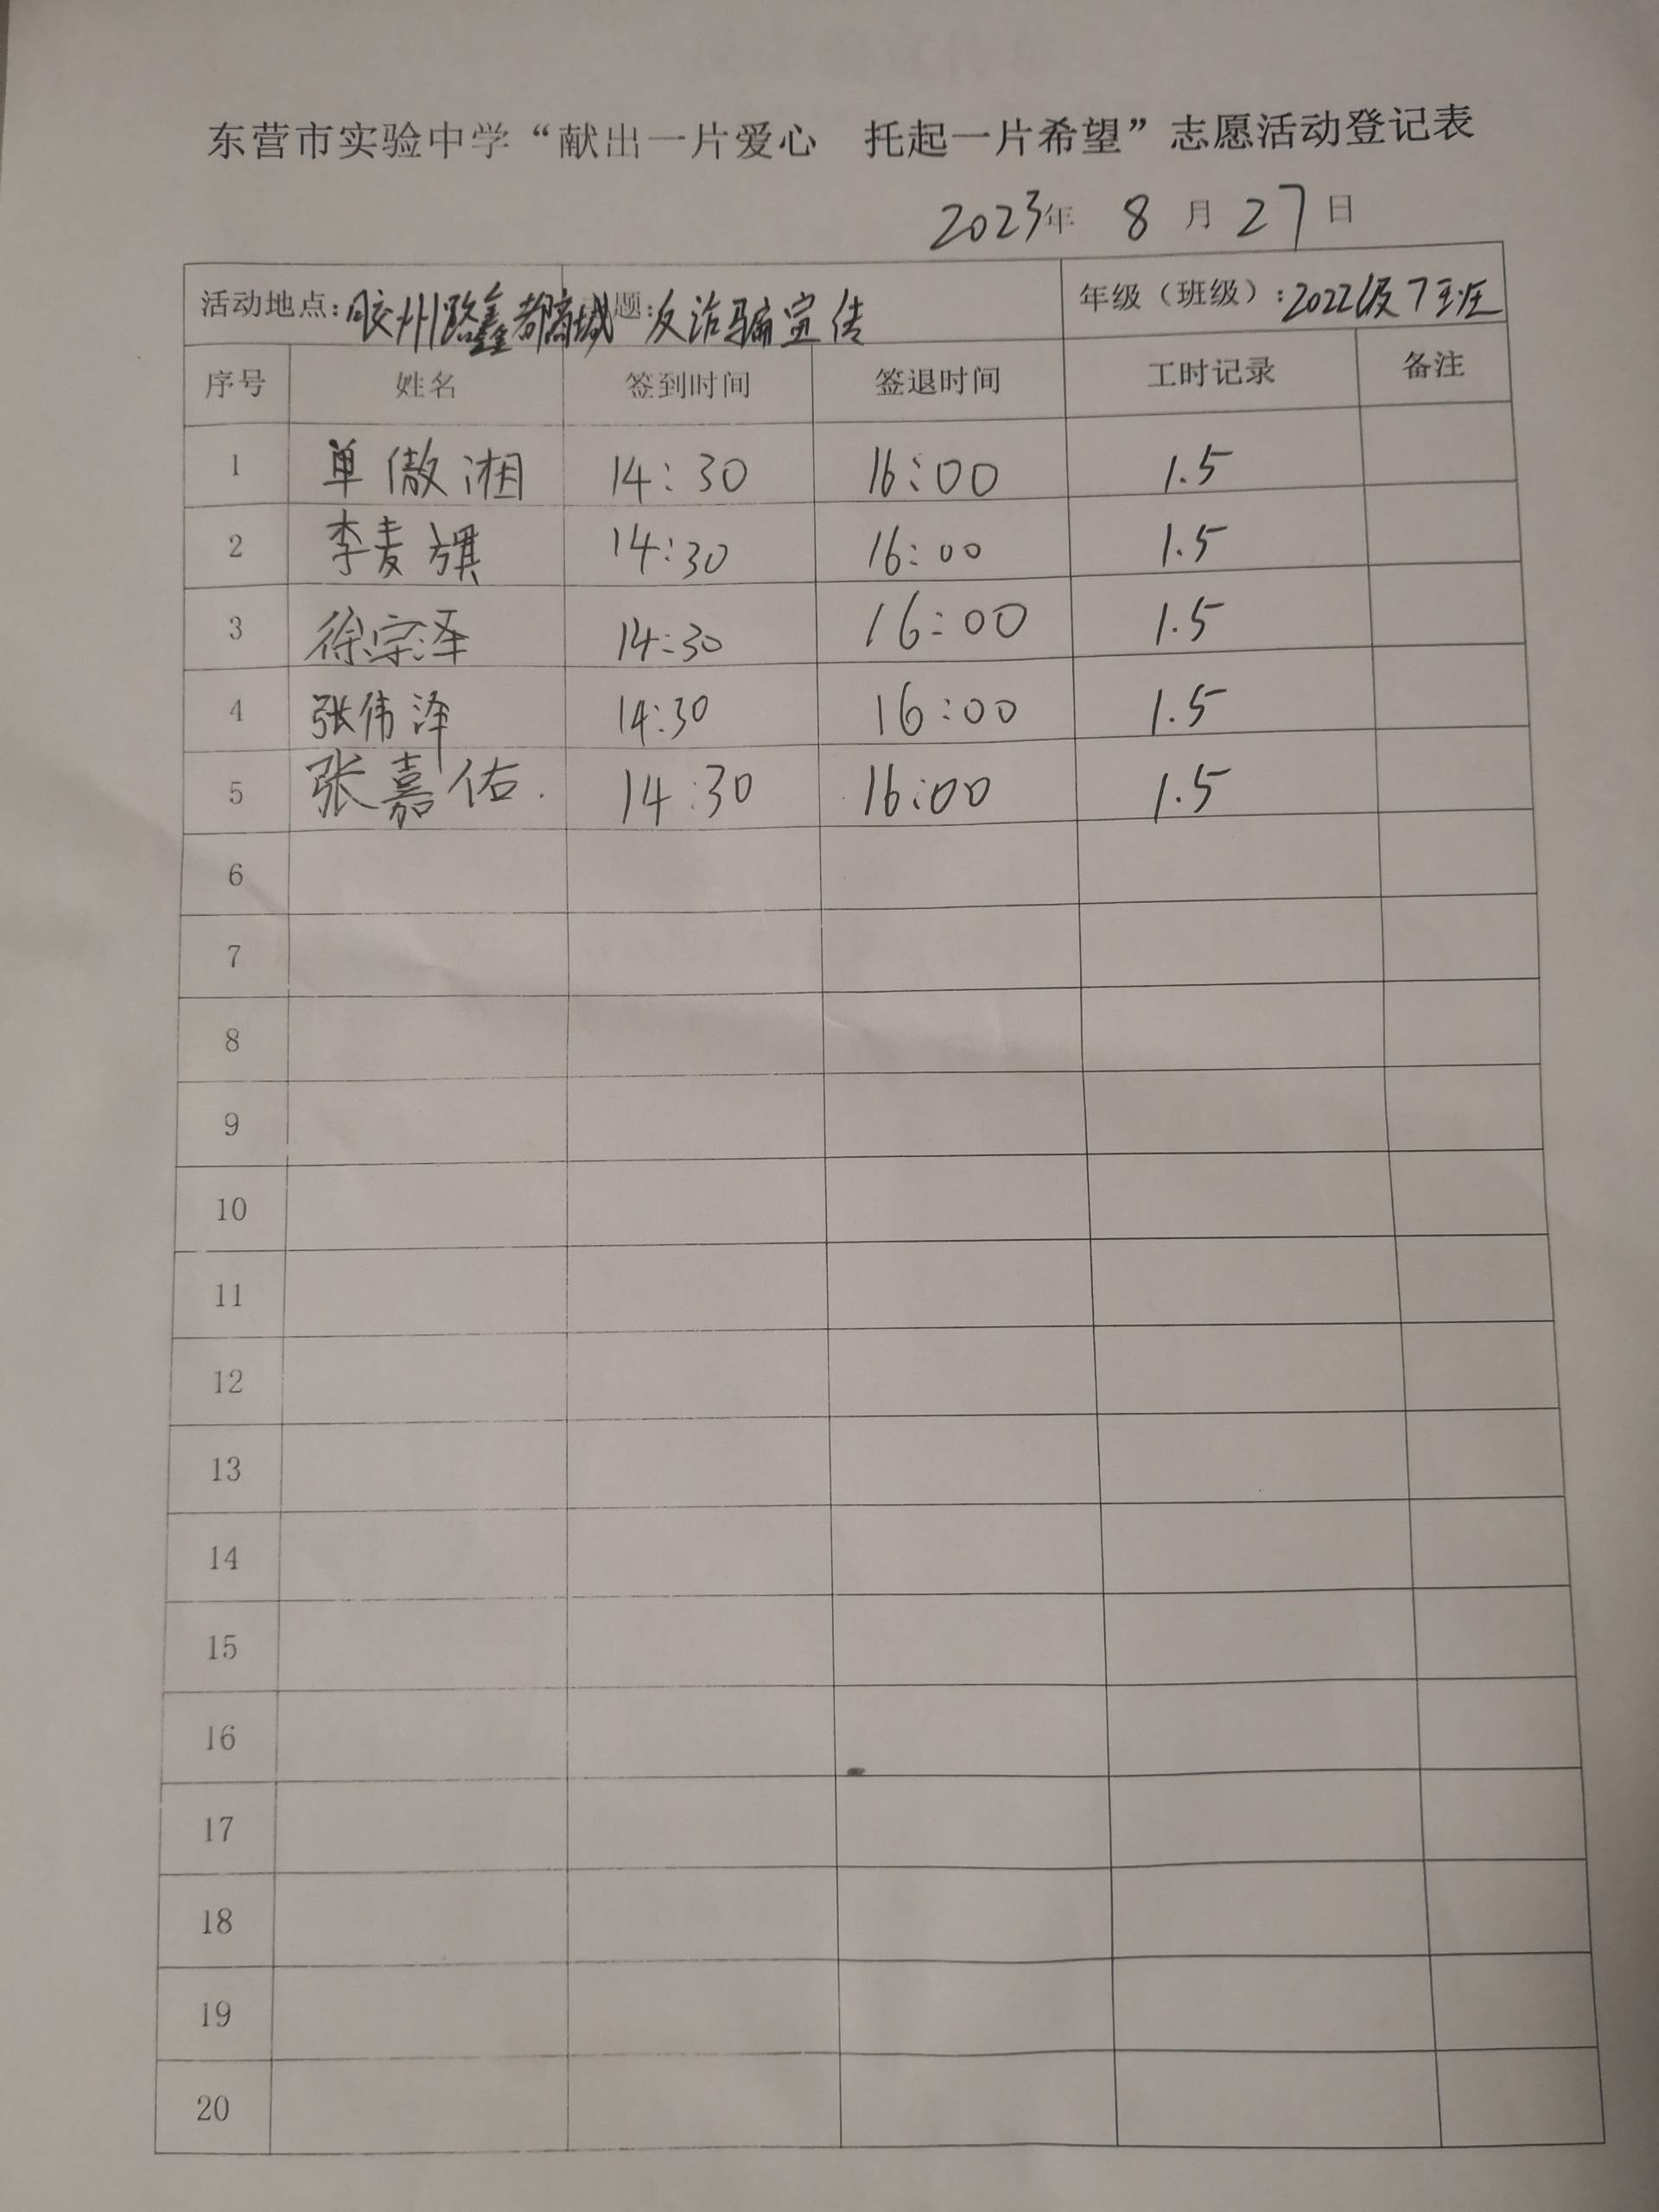 东营市实验中学“献出一片爱心 托起一片希望”志愿活动登记表
2023年 8 月 27 日
活动地点：胶州路鑫都商城 题：反诈骗宣传 年级（班级）：2022级7班
序号 姓名 签到时间 签退时间 工时记录 备注
1 单傲湘 14:30 16:00 1.5
2 李麦旗 14:30 16:00 1.5
3 徐宗泽 14:30 16:00 1.5
4 张伟泽 14:30 16:00 1.5
5 张嘉佑. 14:30 16:00 1.5
6
7
8
9
10
11
12
13
14
15
16
17
18
19
20